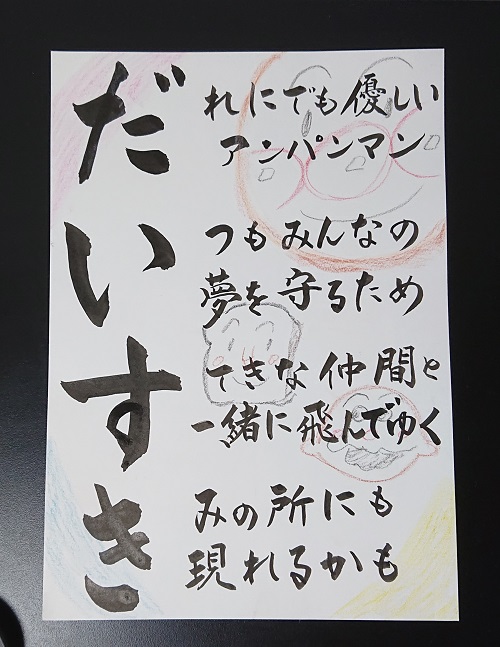 だいすき
れにでも優しい
アンパンマン
つもみんなの
夢を守るため
てきな仲間と
一緒に飛んでゆく
みの所にも
現れるかも